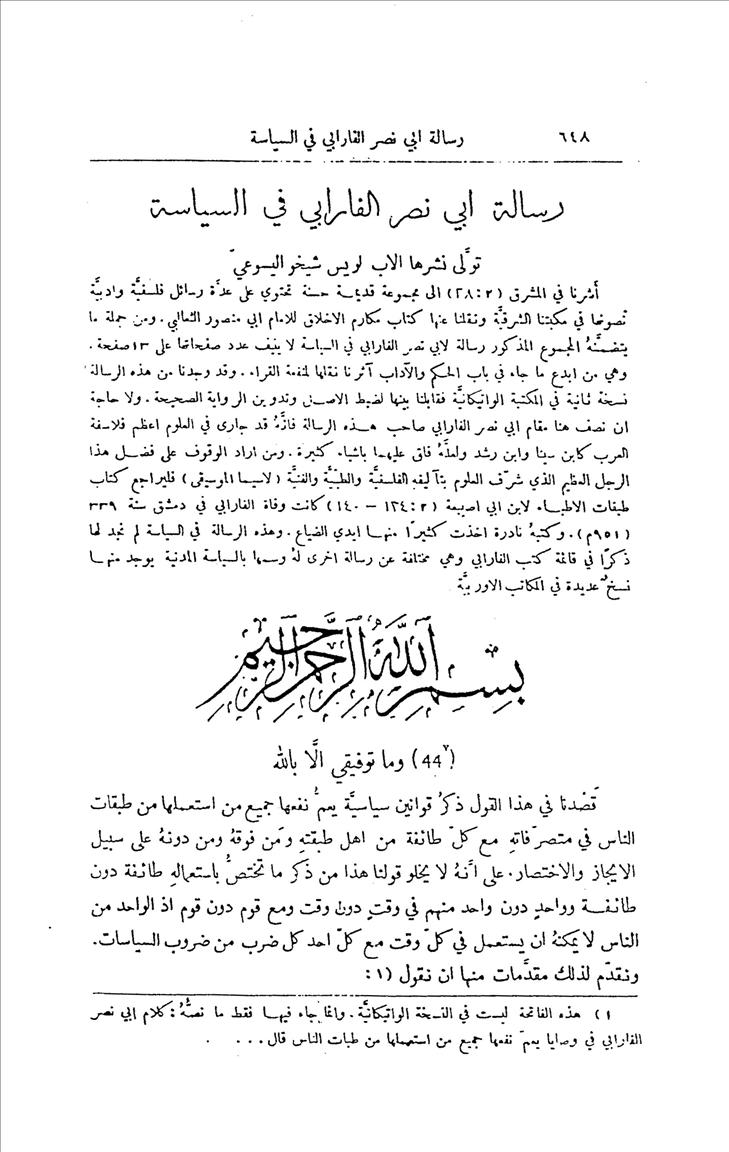 ٦٤٨ رسالة ابي نصر الفارابي في السياسة
رسالة ابي نصر الفارابي في السياسة
تولَّى نشرها الاب لويس شيخو اليسوعيّ
أشرنا في المشرق (٢: ٢٨) الى مجموعة قديمة حسنة تحتوي على عدَّة رسائل فلسفيَّة وادبيَّة
نصونها في مكتبتنا الشرقيَّة ونقلنا عنها كتاب مكارم الاخلاق للامام ابي منصور الثعالبي. ومن جملة ما
يتضمَّنهُ المجموع المذكور رسالة لابي نصر الفارابي في السياسة لا ينيف عدد صفحاتها على ١٣ صفحة.
وهي من ابدع ما جاء في باب الحكم والآداب آثرنا نقلها لمنفعة القراء. وقد وجدنا من هذه الرسالة
نسخة ثانية في المكتبة الواتيكانيَّة فقابلنا بينها لضبط الاصل وتدوين الرواية الصحيحة. ولا حاجة
ان نصف هنا مقام ابي نصر الفارابي صاحب هذه الرسالة فانَّهُ قد جارى في العلوم اعظم فلاسفة
العرب كابن سينا وابن رشد ولعلَّهُ فاق عليهما باشياء كثيرة. ومن اراد الوقوف على فضل هذا
الرجل العظيم الذي شرَّف العلوم بتآليفه الفلسفيَّة والطبّيَّة والفنيَّة (لاسيما الموسيقى) فليراجع كتاب
طبقات الاطباء لابن ابي اصيبعة (٢: ١٣٤ – ١٤٠) كانت وفاة الفارابي في دمشق سنة ٣٣٩
(٩٥١م). وكتبهُ نادرة اخذت كثيرًا منها ايدي الضياع. وهذه الرسالة في السياسة لم نجد لها
ذكرًا في قائمة كتب الفارابي وهي مختلفة عن رسالة اخرى لهُ وسمها بالسياسة المدنية يوجد منها
نسخٌ عديدة في المكاتب الاوربيَّة
بسم الله الرحمن الرحيم
(44ᵛ) وما توفيقي الَّا بالله
قَصْدنا في هذا القول ذكرُ قوانين سياسيَّة يعمُّ نفعها جميع من استعملها من طبقات
الناس في متصرّفاتهِ مع كلّ طائفة من اهل طبقتهِ ومَن فوقهُ ومن دونهُ على سبيل
الايجاز والاختصار. على أنَّهُ لا يخلو قولنا هذا من ذكر ما تختصُّ باستعمالهِ طائفة دون
طائفة وواحدٍ دون واحد منهم في وقتٍ دون وقت ومع قوم دون قوم اذ الواحد من
الناس لا يمكنهُ ان يستعمل في كلّ وقت مع كلّ احد كل ضرب من ضروب السياسات.
ونقدّم لذلك مقدَّمات منها ان نقول (١:
١) هذه الفاتحة ليست في النسخة الواتيكانيَّة. وانما جاء فيها فقط ما نصُّهُ: كلام ابي نصر
الفارابي في وصايا يعمّ نفعها جميع من استعملها من طبقات الناس قال...